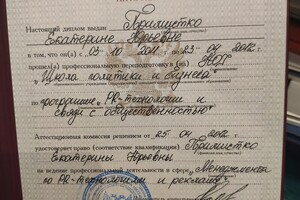 Настоящий диплом выдан
Екатерине Юрьевне
в том, что он(а) с 03.10 2011 по 23.04 2012
прошел(а) профессиональную переподготовку в (на) НОУ
"Школа политики и бизнеса"
по программе "PR-технологии и
связи с общественностью"
Аттестационная комиссия решением от 25 04 2012
удостоверяет право (соответствие квалификации)
Екатерины Юрьевны
на ведение профессиональной деятельности в сфере "Менеджмента
по PR-технологиям и рекламе"